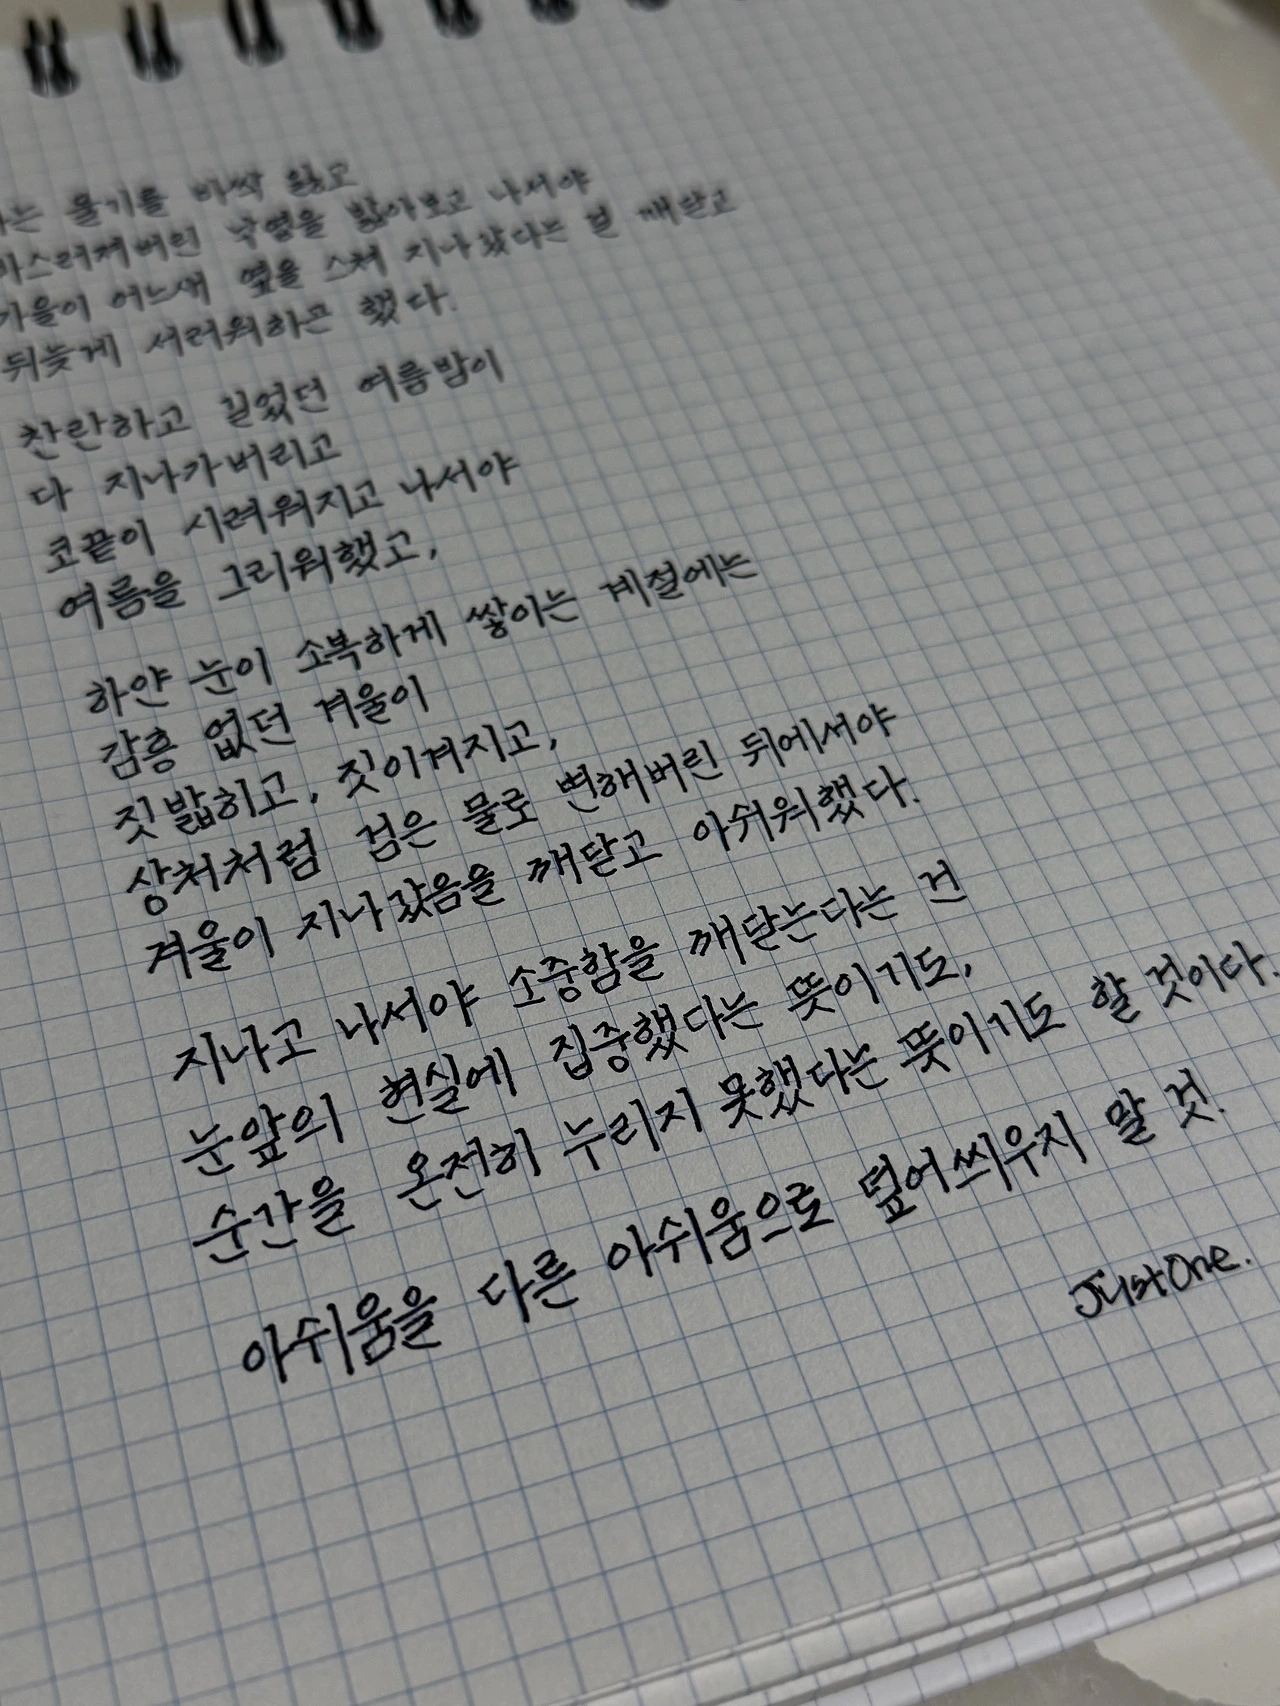 물기를 바싹 잃고
바스러져버린 낙엽을 밟아보고 나서야
가을이 어느새 옆을 스쳐 지나갔다는 걸 깨닫고
뒤늦게 서러워하곤 했다.
찬란하고 길었던 여름밤이
다 지나가버리고
코끝이 시려워지고 나서야
여름을 그리워했고,
하얀 눈이 소복하게 쌓이는 계절에는
감흥 없던 겨울이
짓밟히고, 짓이겨지고,
상처처럼 검은 물로 변해버린 뒤에서야
겨울이 지나갔음을 깨닫고 아쉬워했다.
지나고 나서야 소중함을 깨닫는다는 건
눈앞의 현실에 집중했다는 뜻이기도,
순간을 온전히 누리지 못했다는 뜻이기도 할 것이다.
아쉬움을 다른 아쉬움으로 덮어씌우지 말 것.
JustOne.